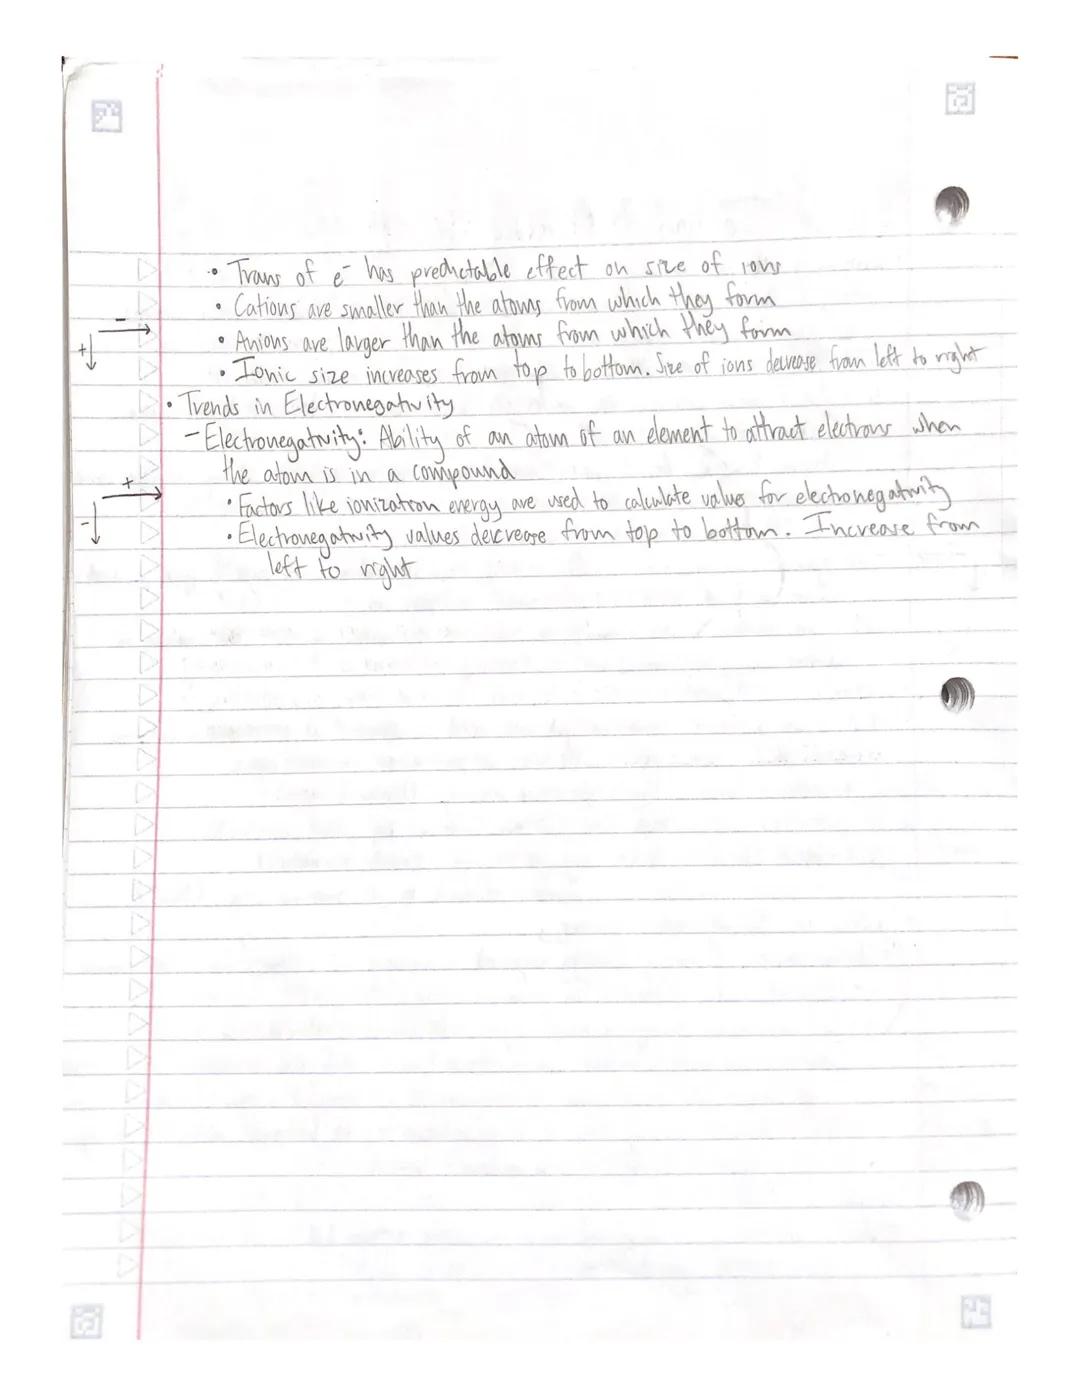 • Trans of e⁻ has predictable effect on size of ions
• Cations are smaller than the atoms from which they form
• Anions are larger than the atoms from which they form
• Ionic size increases from top to bottom. Size of ions decrease from left to right
- +
• Trends in Electronegativity
- Electronegativity: Ability of an atom of an element to attract electrons when
the atom is in a compound
• Factors like ionization energy are used to calculate values for electronegativity
• Electronegativity values decrease from top to bottom. Increase from
left to right
+ -